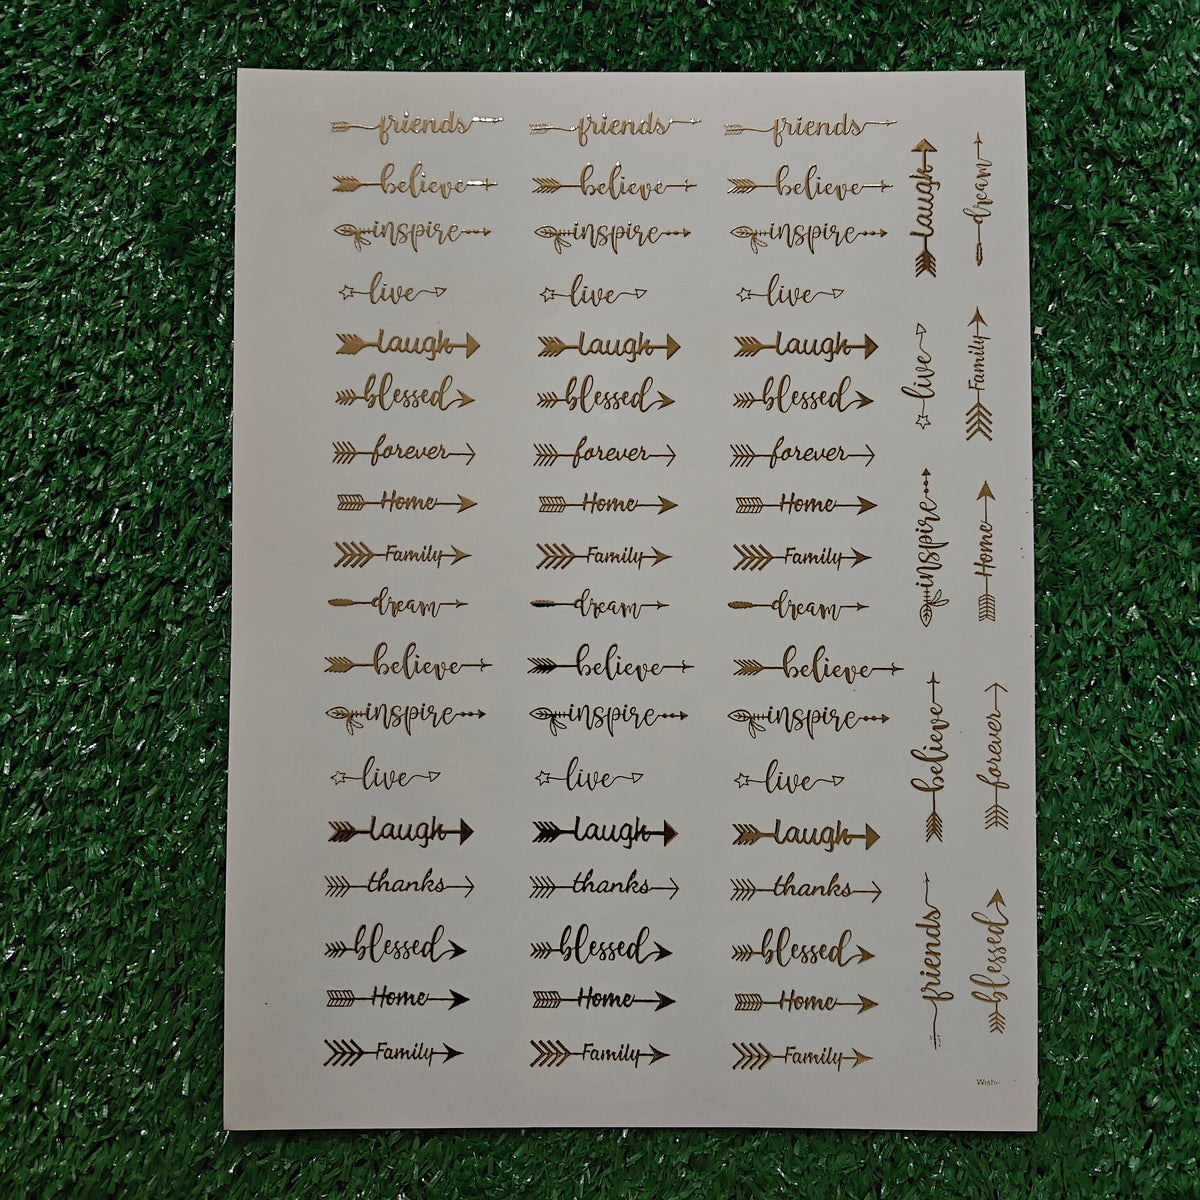 friends friends friends
believe believe believe
inspire inspire inspire
live live live
laugh laugh laugh
blessed blessed blessed
forever forever forever
Home Home Home
Family Family Family
dream dream dream
believe believe believe
inspire inspire inspire
live live live
laugh laugh laugh
thanks thanks thanks
blessed blessed blessed
Home Home Home
Family Family Family
laugh
dream
live
Family
inspire
Home
believe
forever
friends
blessed